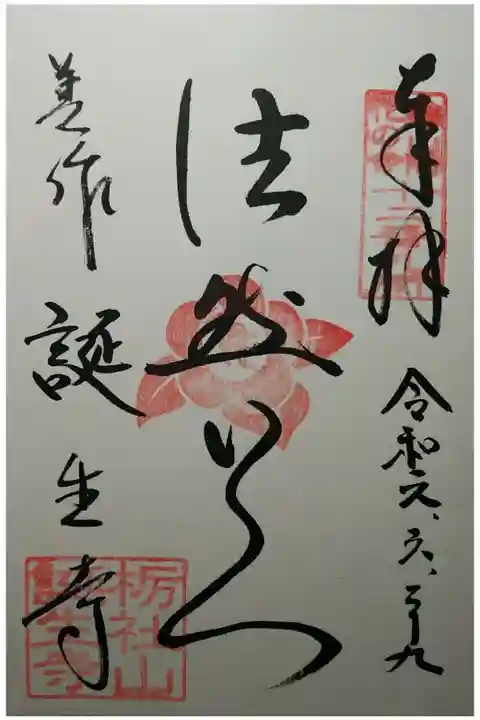 奉拝
令和元、六、二十九
法然上人
美作
誕生寺
栃社山
誕生寺